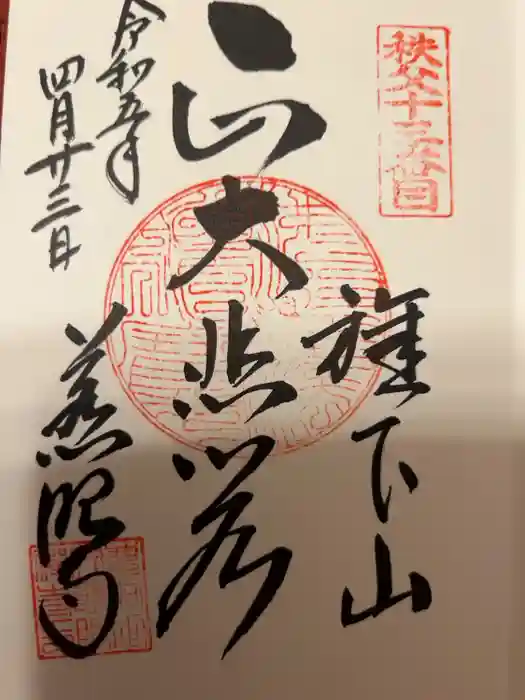 秩父十三番
旗下山
大悲閣
令和五年
四月廿三日
慈眼寺